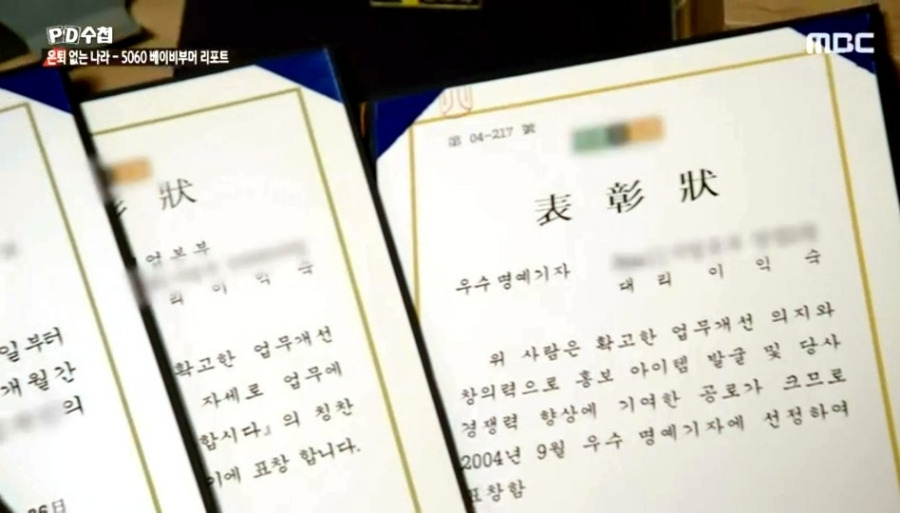 PD수첩
은퇴 없는 나라 - 5060 베이비부머 리포트
MBC
일부터
개월간
의
26日
狀
리 이 익 숙
확고한 업무개선
자세로 업무에
합시다』의 칭찬
이에 표창 합니다.
第 04-217 號
表 彰 狀
우수명예기자
대 리 이 익 숙
위 사람은 확고한 업무개선 의지와
창의력으로 홍보 아이템 발굴 및 당사
경쟁력 향상에 기여한 공로가 크므로
2004년 9월 우수 명예기자에 선정하여
표창함